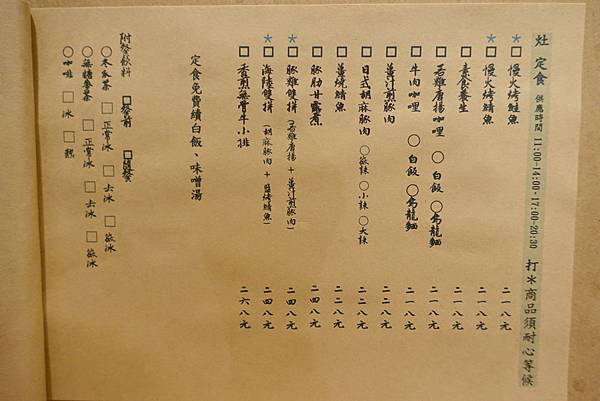 灶 定食 供應時間 11:00-14:00、17:00-20:30 打＊商品須耐心等候
＊□慢火烤鮭魚 二一八元
＊□慢火烤鯖魚 二一八元
□素食養生 二一八元
□若雞唐揚咖哩 ○白飯 ○烏龍麵 二一八元
□牛肉咖哩 ○白飯 ○烏龍麵 二一八元
□薑汁煎豚肉 二二八元
□日式胡麻豚肉 ○微辣 ○小辣 ○大辣 二二八元
□薑燒鯖魚 二二八元
□豚肋甘露煮 二四八元
＊□豚雞雙拼(若雞唐揚+薑汁煎豚肉) 二四八元
＊□海陸雙拼(胡麻豚肉+鹽烤鯖魚) 二四八元
□香煎無骨牛小排 二六八元
定食免費續白飯、味噌湯
附餐飲料 □餐前 □隨餐
○冬瓜茶 □正常冰 □去冰 □微冰
○無糖麥茶 □正常冰 □去冰 □微冰
○咖啡 □冰 □熱